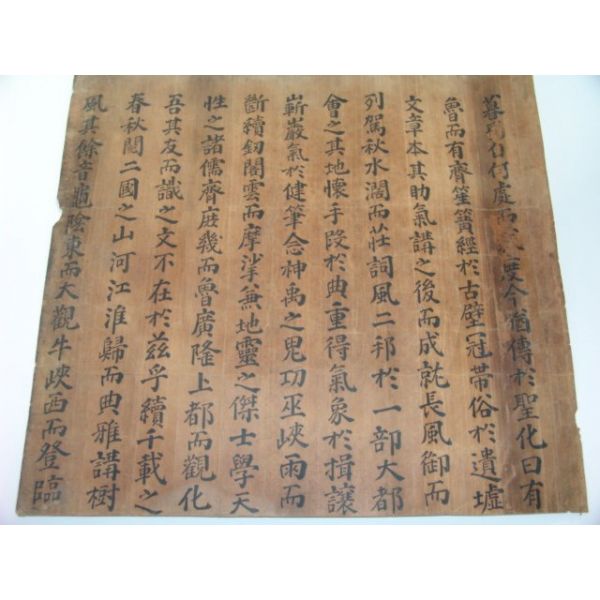 暮 何處 今猶傳於聖化曰有
魯而有齊笙簧經於古壁冠帶俗於遺墟
文章本其助氣講之後而成就長風御而
列駕秋水濶而莊詞風二邦於一部大都
會之其地懷手段於典重得氣象於揖讓
嶄巖氣於健筆念神禹之鬼功巫峽雨而
斷續釰閣雲而摩挲兼地靈之傑士學天
性之諸儒齊庶幾而魯廣隆上都而觀化
吾其友而識之文不在於茲乎續千載之
春秋閱二國之山河江淮歸而典雅講樹
風其餘音龜陰東而大觀牛峽西而登臨